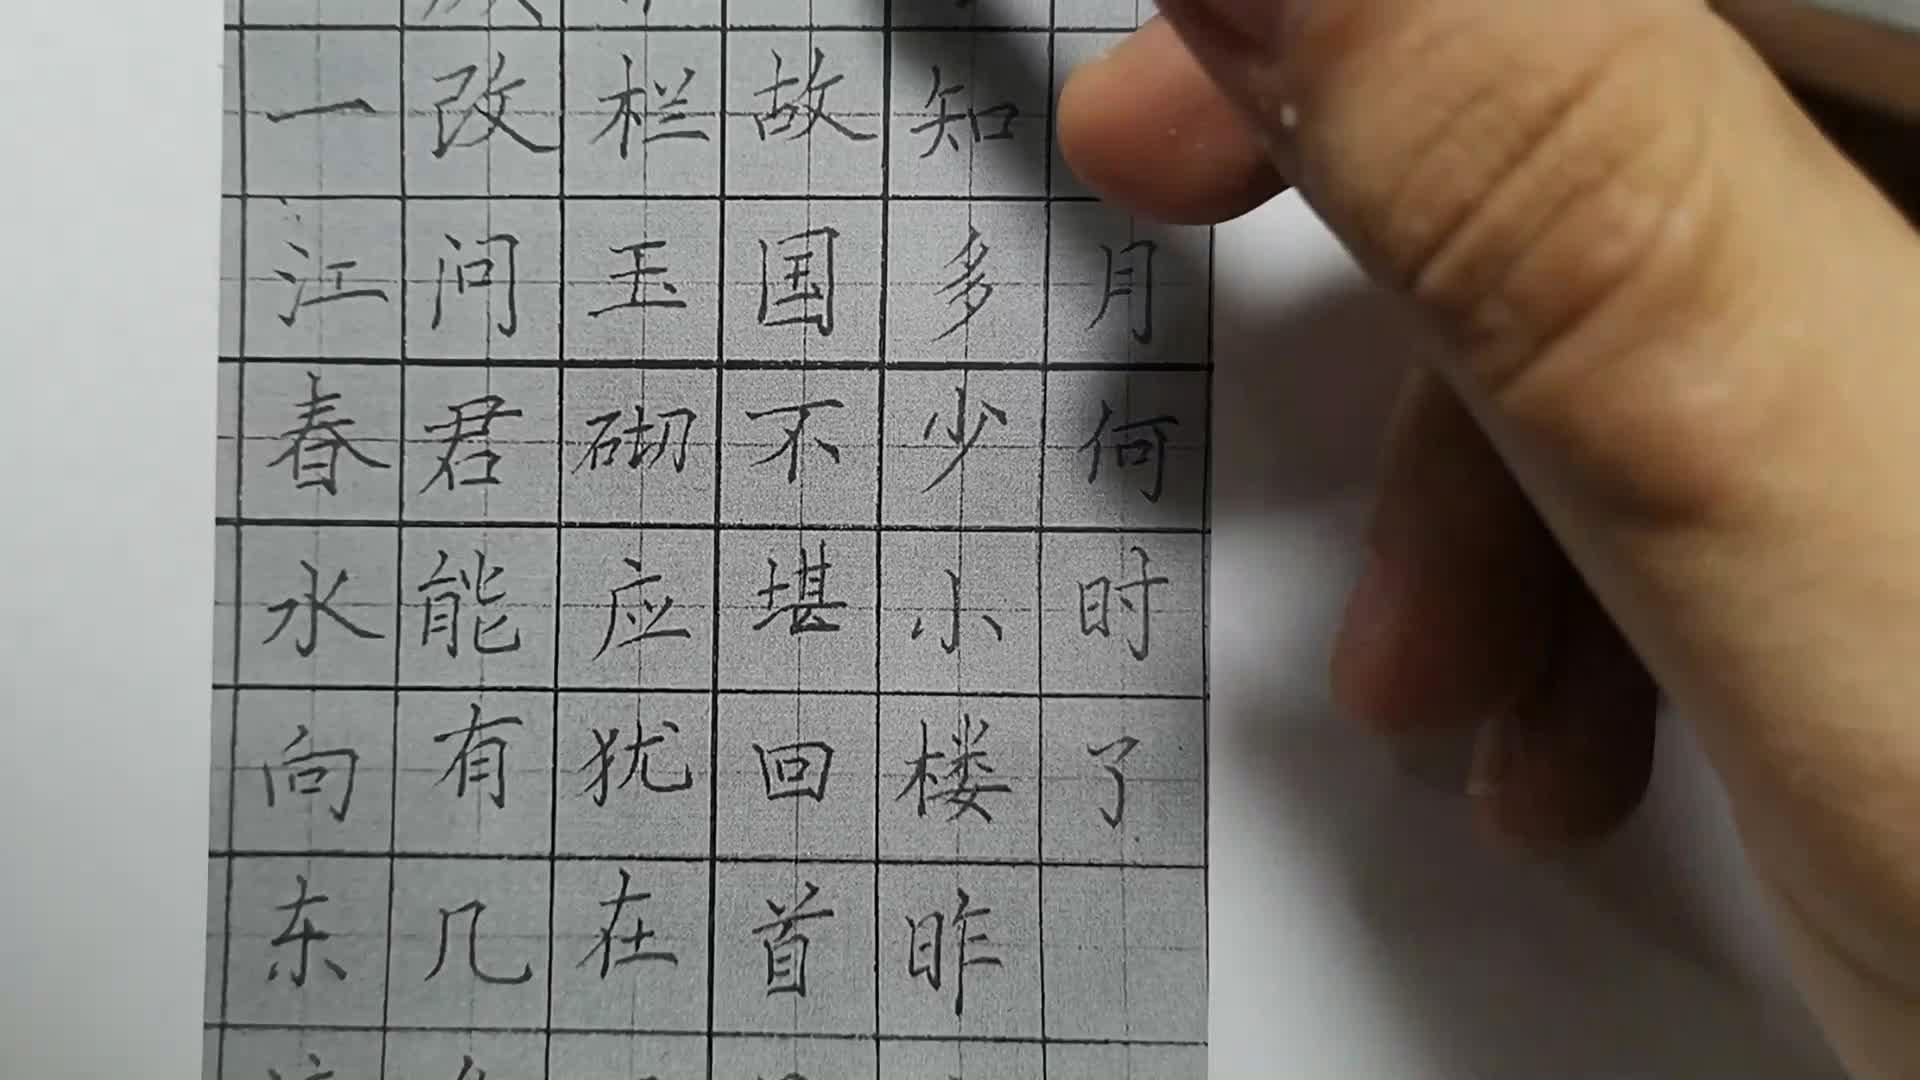 月何时了
知多少小楼昨
故国不堪回首
栏玉砌应犹在
改问君能有几
一江春水向东